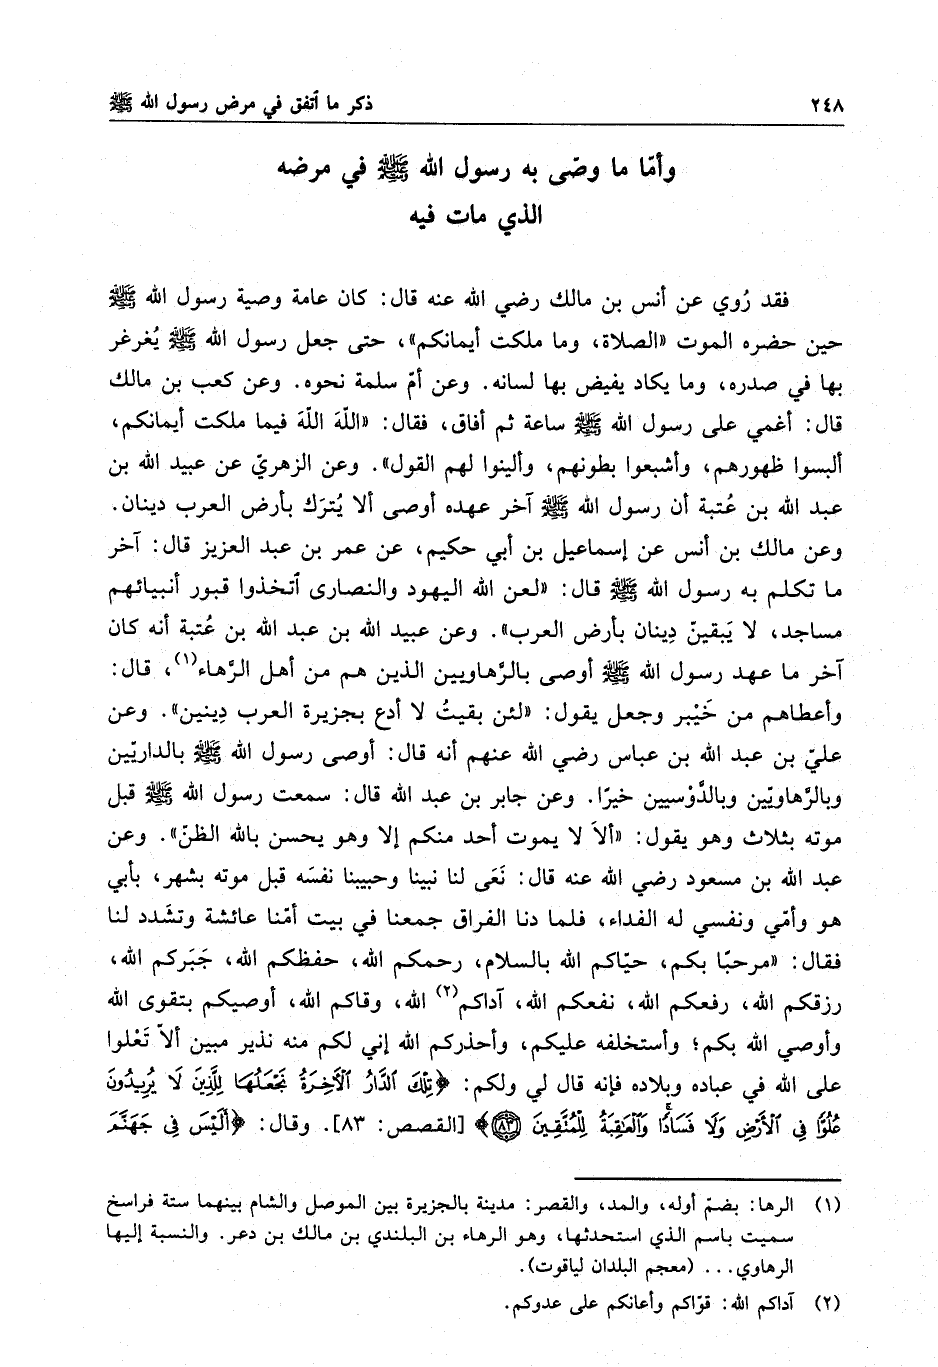 ٢٤٨ ذكر ما اتفق في مرض رسول الله ﷺ
وأمّا ما وصّى به رسول الله ﷺ في مرضه
الذي مات فيه
فقد رُوي عن أنس بن مالك رضي الله عنه قال: كان عامة وصية رسول الله ﷺ
حين حضره الموت «الصلاة، وما ملكت أيمانكم»، حتى جعل رسول الله ﷺ يُغرغر
بها في صدره، وما يكاد يفيض بها لسانه. وعن أمّ سلمة نحوه. وعن كعب بن مالك
قال: أغمي على رسول الله ﷺ ساعة ثم أفاق، فقال: «اللّهَ اللّهَ فيما ملكت أيمانكم،
ألبسوا ظهورهم، وأشبعوا بطونهم، وألينوا لهم القول». وعن الزهريّ عن عبيد الله بن
عبد الله بن عُتبة أن رسول الله ﷺ آخر عهده أوصى ألا يُترَك بأرض العرب دينان.
وعن مالك بن أنس عن إسماعيل بن أبي حكيم، عن عمر بن عبد العزيز قال: آخر
ما تكلم به رسول الله ﷺ قال: «لعن الله اليهود والنصارى اتخذوا قبور أنبيائهم
مساجد، لا يَبقينّ دِينان بأرض العرب». وعن عبيد الله بن عبد الله بن عُتبة أنه كان
آخر ما عهد رسول الله ﷺ أوصى بالرَّهاويين الذين هم من أهل الرَّهاء(١)، قال:
وأعطاهم من خَيْبر وجعل يقول: «لئن بقيتُ لا أدع بجزيرة العرب دِينين». وعن
عليّ بن عبد الله بن عباس رضي الله عنهم أنه قال: أوصى رسول الله ﷺ بالداريّين
وبالرَّهاويّين وبالدَّوْسيين خيرًا. وعن جابر بن عبد الله قال: سمعت رسول الله ﷺ قبل
موته بثلاث وهو يقول: «ألاَ لا يموت أحد منكم إلا وهو يحسن بالله الظنّ». وعن
عبد الله بن مسعود رضي الله عنه قال: نَعَى لنا نبينا وحبيبنا نفسَه قبل موته بشهر، بأبي
هو وأمّي ونفسي له الفداء، فلما دنا الفراق جمعنا في بيت أمّنا عائشة وتشَدد لنا
فقال: «مرحبًا بكم، حيّاكم الله بالسلام، رحمكم الله، حفظكم الله، جَبَركم الله،
رزقكم الله، رفعكم الله، نفعكم الله، آداكم(٢) الله، وقاكم الله، أوصيكم بتقوى الله
وأوصي الله بكم؛ وأستخلفه عليكم، وأحذركم الله إني لكم منه نذير مبين ألاّ تَعْلوا
على الله في عباده وبلاده فإنه قال لي ولكم: ﴿تِلْكَ ٱلدَّارُ ٱلْآخِرَةُ نَجْعَلُهَا لِلَّذِينَ لَا يُرِيدُونَ
عُلُوًّا فِي ٱلْأَرْضِ وَلَا فَسَادًا ۚ وَٱلْعَاقِبَةُ لِلْمُتَّقِينَ ۝٨٣﴾ [القصص: ٨٣]. وقال: ﴿أَلَيْسَ فِي جَهَنَّمَ
(١) الرها: بضمّ أوله، والمد، والقصر: مدينة بالجزيرة بين الموصل والشام بينهما ستة فراسخ
سميت باسم الذي استحدثها، وهو الرهاء بن البلندي بن مالك بن دعر. والنسبة إليها
الرهاوي... (معجم البلدان لياقوت).
(٢) آداكم الله: قوّاكم وأعانكم على عدوكم.